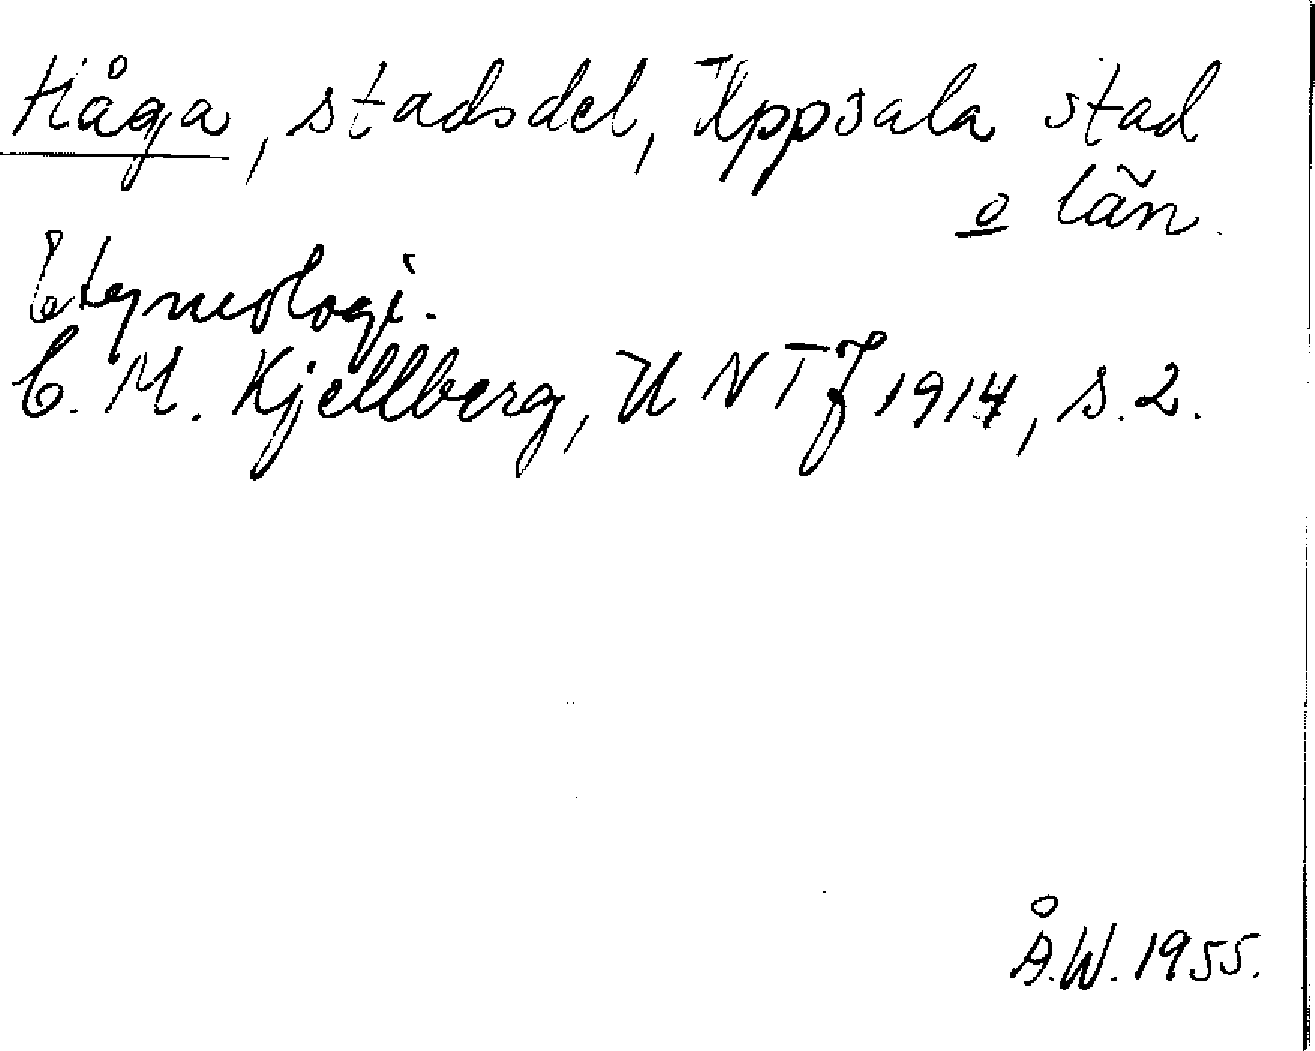 Håga, stadsdel, Uppsala stad
o län.
Etymologi.
C. M. Kjellberg, UNTf 1914, s. 2.
Å.W. 1955.